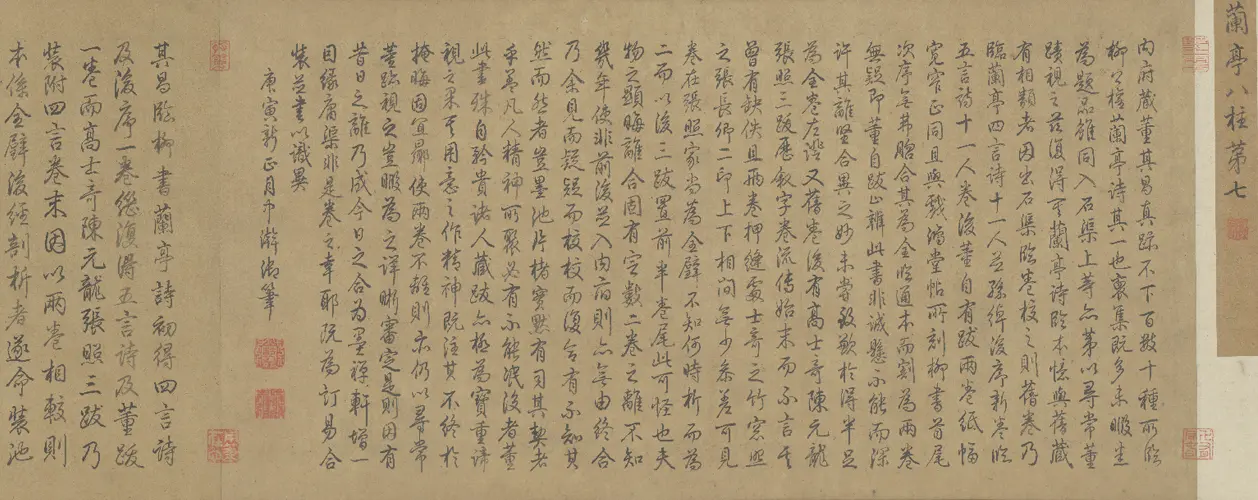 蘭亭八柱第七
内府藏董其昌真跡不下百數十種所臨
柳公權蘭亭詩其一也裒集既多未暇悉
為題品雖同入石渠上等亦第以尋常董
蹟視之茲復得其蘭亭詩臨本憶與舊藏
有相類者因出石渠臨卷校之則舊卷乃
臨蘭亭四言詩十一人並孫綽後序新卷臨
五言詩十一人卷後董自有跋兩卷紙幅
寬窄正同且與戲鴻堂帖所刻柳書首尾
次序無弗吻合其為全臨通本而割為兩卷
無疑即董自跋亦辨此書非誠懸不能而深
許其離堅合異之妙未嘗致歉於得半足
為全卷左證又舊卷後有高士奇陳元龍
張照三跋歷敘字卷流傳始末而不言其
曾有缺佚且兩卷押縫處士奇之竹窗照
之張長卿二印上下相同無少參差可見
卷在張照家尚為全璧不知何時析而為
二而以後三跋置前半卷尾此可怪也夫
物之顯晦離合固有定數二卷之離不知
幾年使非前後並入内府則亦無由終合
乃余見而疑疑而校校而復合有不知其
然而然者豈墨池片楮實默有司其契者
乎蓋凡人精神所聚必有不能泯沒者董
此書殊自矜貴諸人藏跋亦極為寶重諦
視之果其用意之作精神既注其不終於
掩晦固宜曏使兩卷不離則亦仍以尋常
董跡視之豈暇為之詳晰審定是則因有
昔日之離乃成今日之合為墨禪軒增一
因緣庸渠非是卷之幸耶既為訂易合
裝並書以識異
庚寅新正月中澣御筆
其昌臨柳書蘭亭詩初得四言詩
及後序一卷繼復得五言詩及董跋
一卷而高士奇陳元龍張照三跋乃
裝附四言卷末因以兩卷相較則
本係全璧後經剖析者遂命裝池